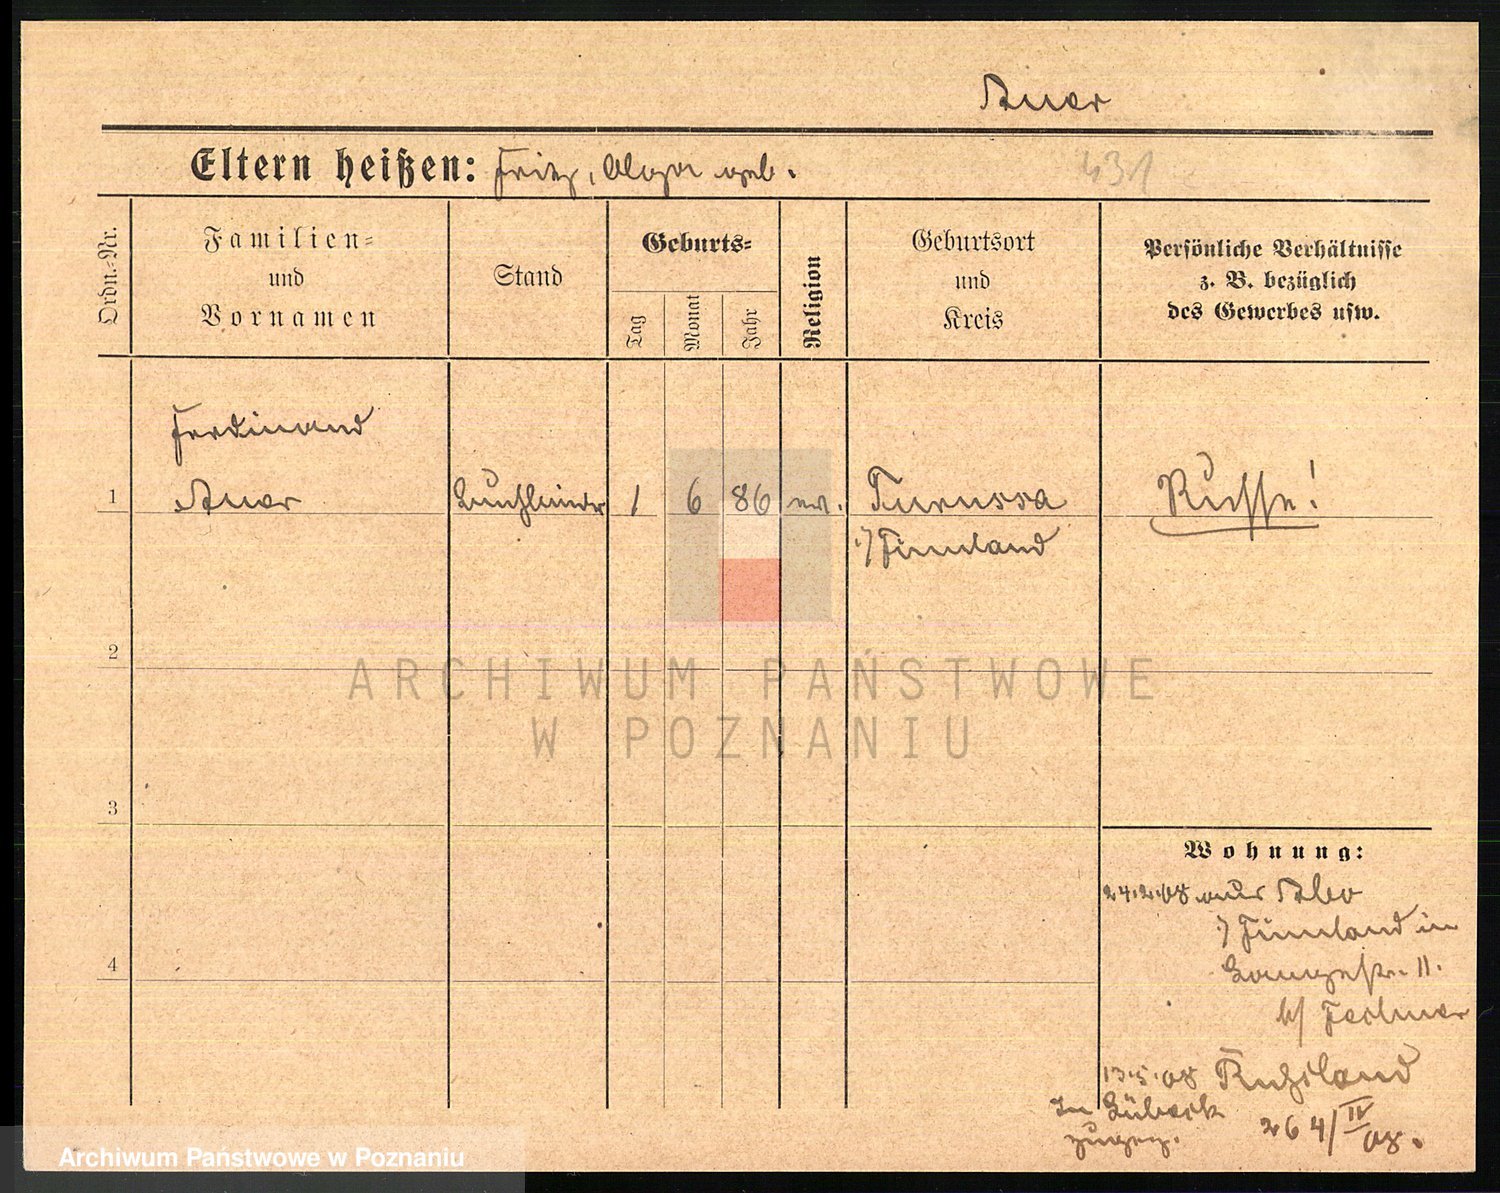 Auer
Eltern heißen: Fritz, Olga geb.
431
Ordn.-Nr.
Familien-
und
Vornamen
Stand
Geburts-
Tag
Monat
Jahr
Religion
Geburtsort
und
Kreis
Persönliche Verhältnisse
z. B. bezüglich
des Gewerbes usw.
Ferdinand
1 Auer Buchbinder 1 6 86 ev. Turussa Russe!
i/Finnland
2
ARCHIWUM PAŃSTWOWE
W POZNANIU
3
Wohnung:
24.2.08 aus Abo
i/Finnland in
Langestr. 11.
b/
4
13.5.08 Rußland
In Lübeck
zugez.
264/IV 08.
Archiwum Państwowe w Poznaniu